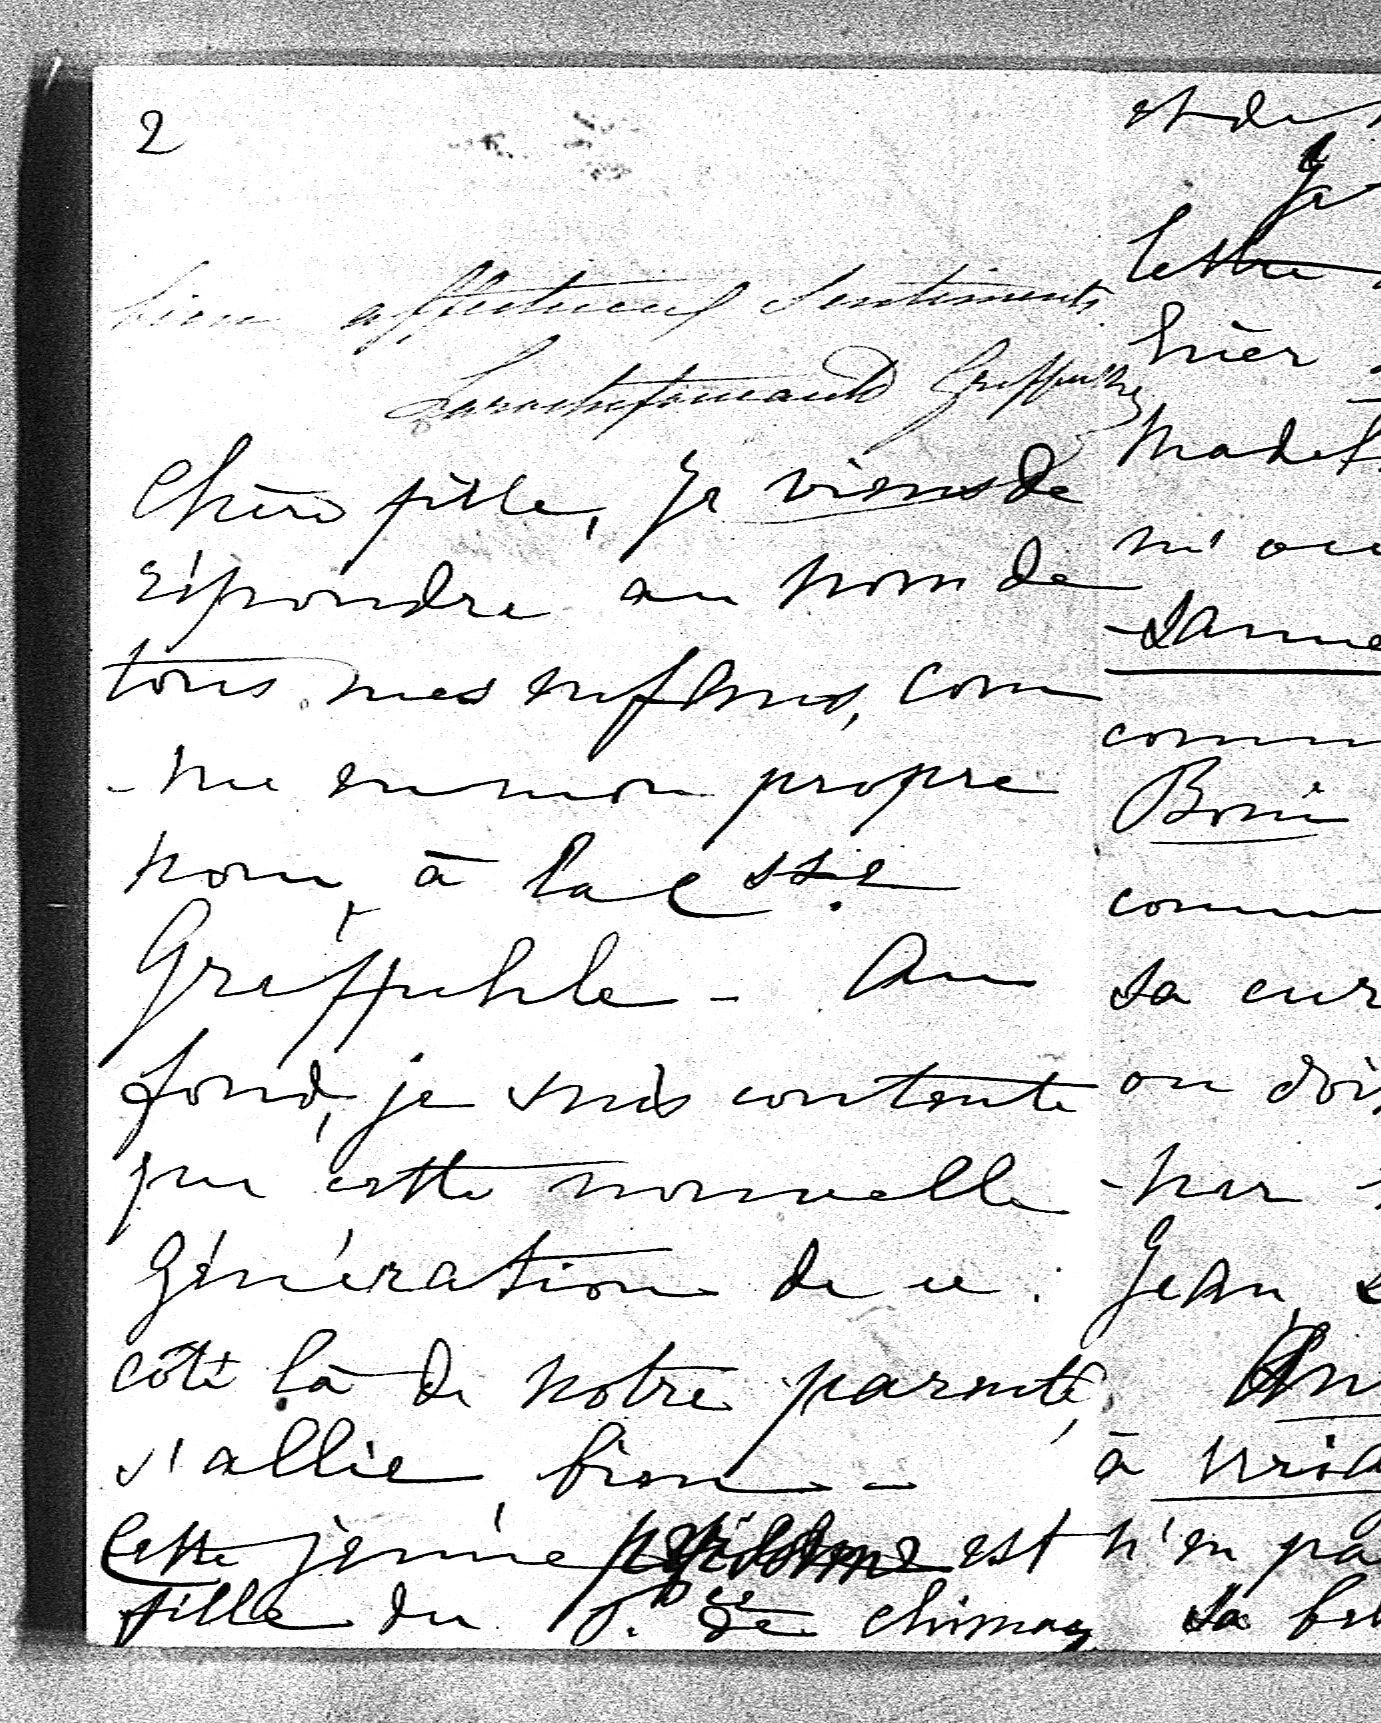 2
bien affectueux sentiments
Larochefoucauld Greffulhe
Chère fille, je viens de
répondre au nom de
tous mes enfans, com
-me en mon propre
nom, à la Csse
Greffulhe - Au
fond, je suis contente
que cette nouvelle
génération de ce
côté là de notre parenté,
s'allie bien --
Cette jeune personne est
fille du Pce de Chimay
et de
Je
lettre
hier
Madel
m'
comm
Boni
comm
sa cur
on doi
-ner
Jean,
à
n'en pa
sa bel